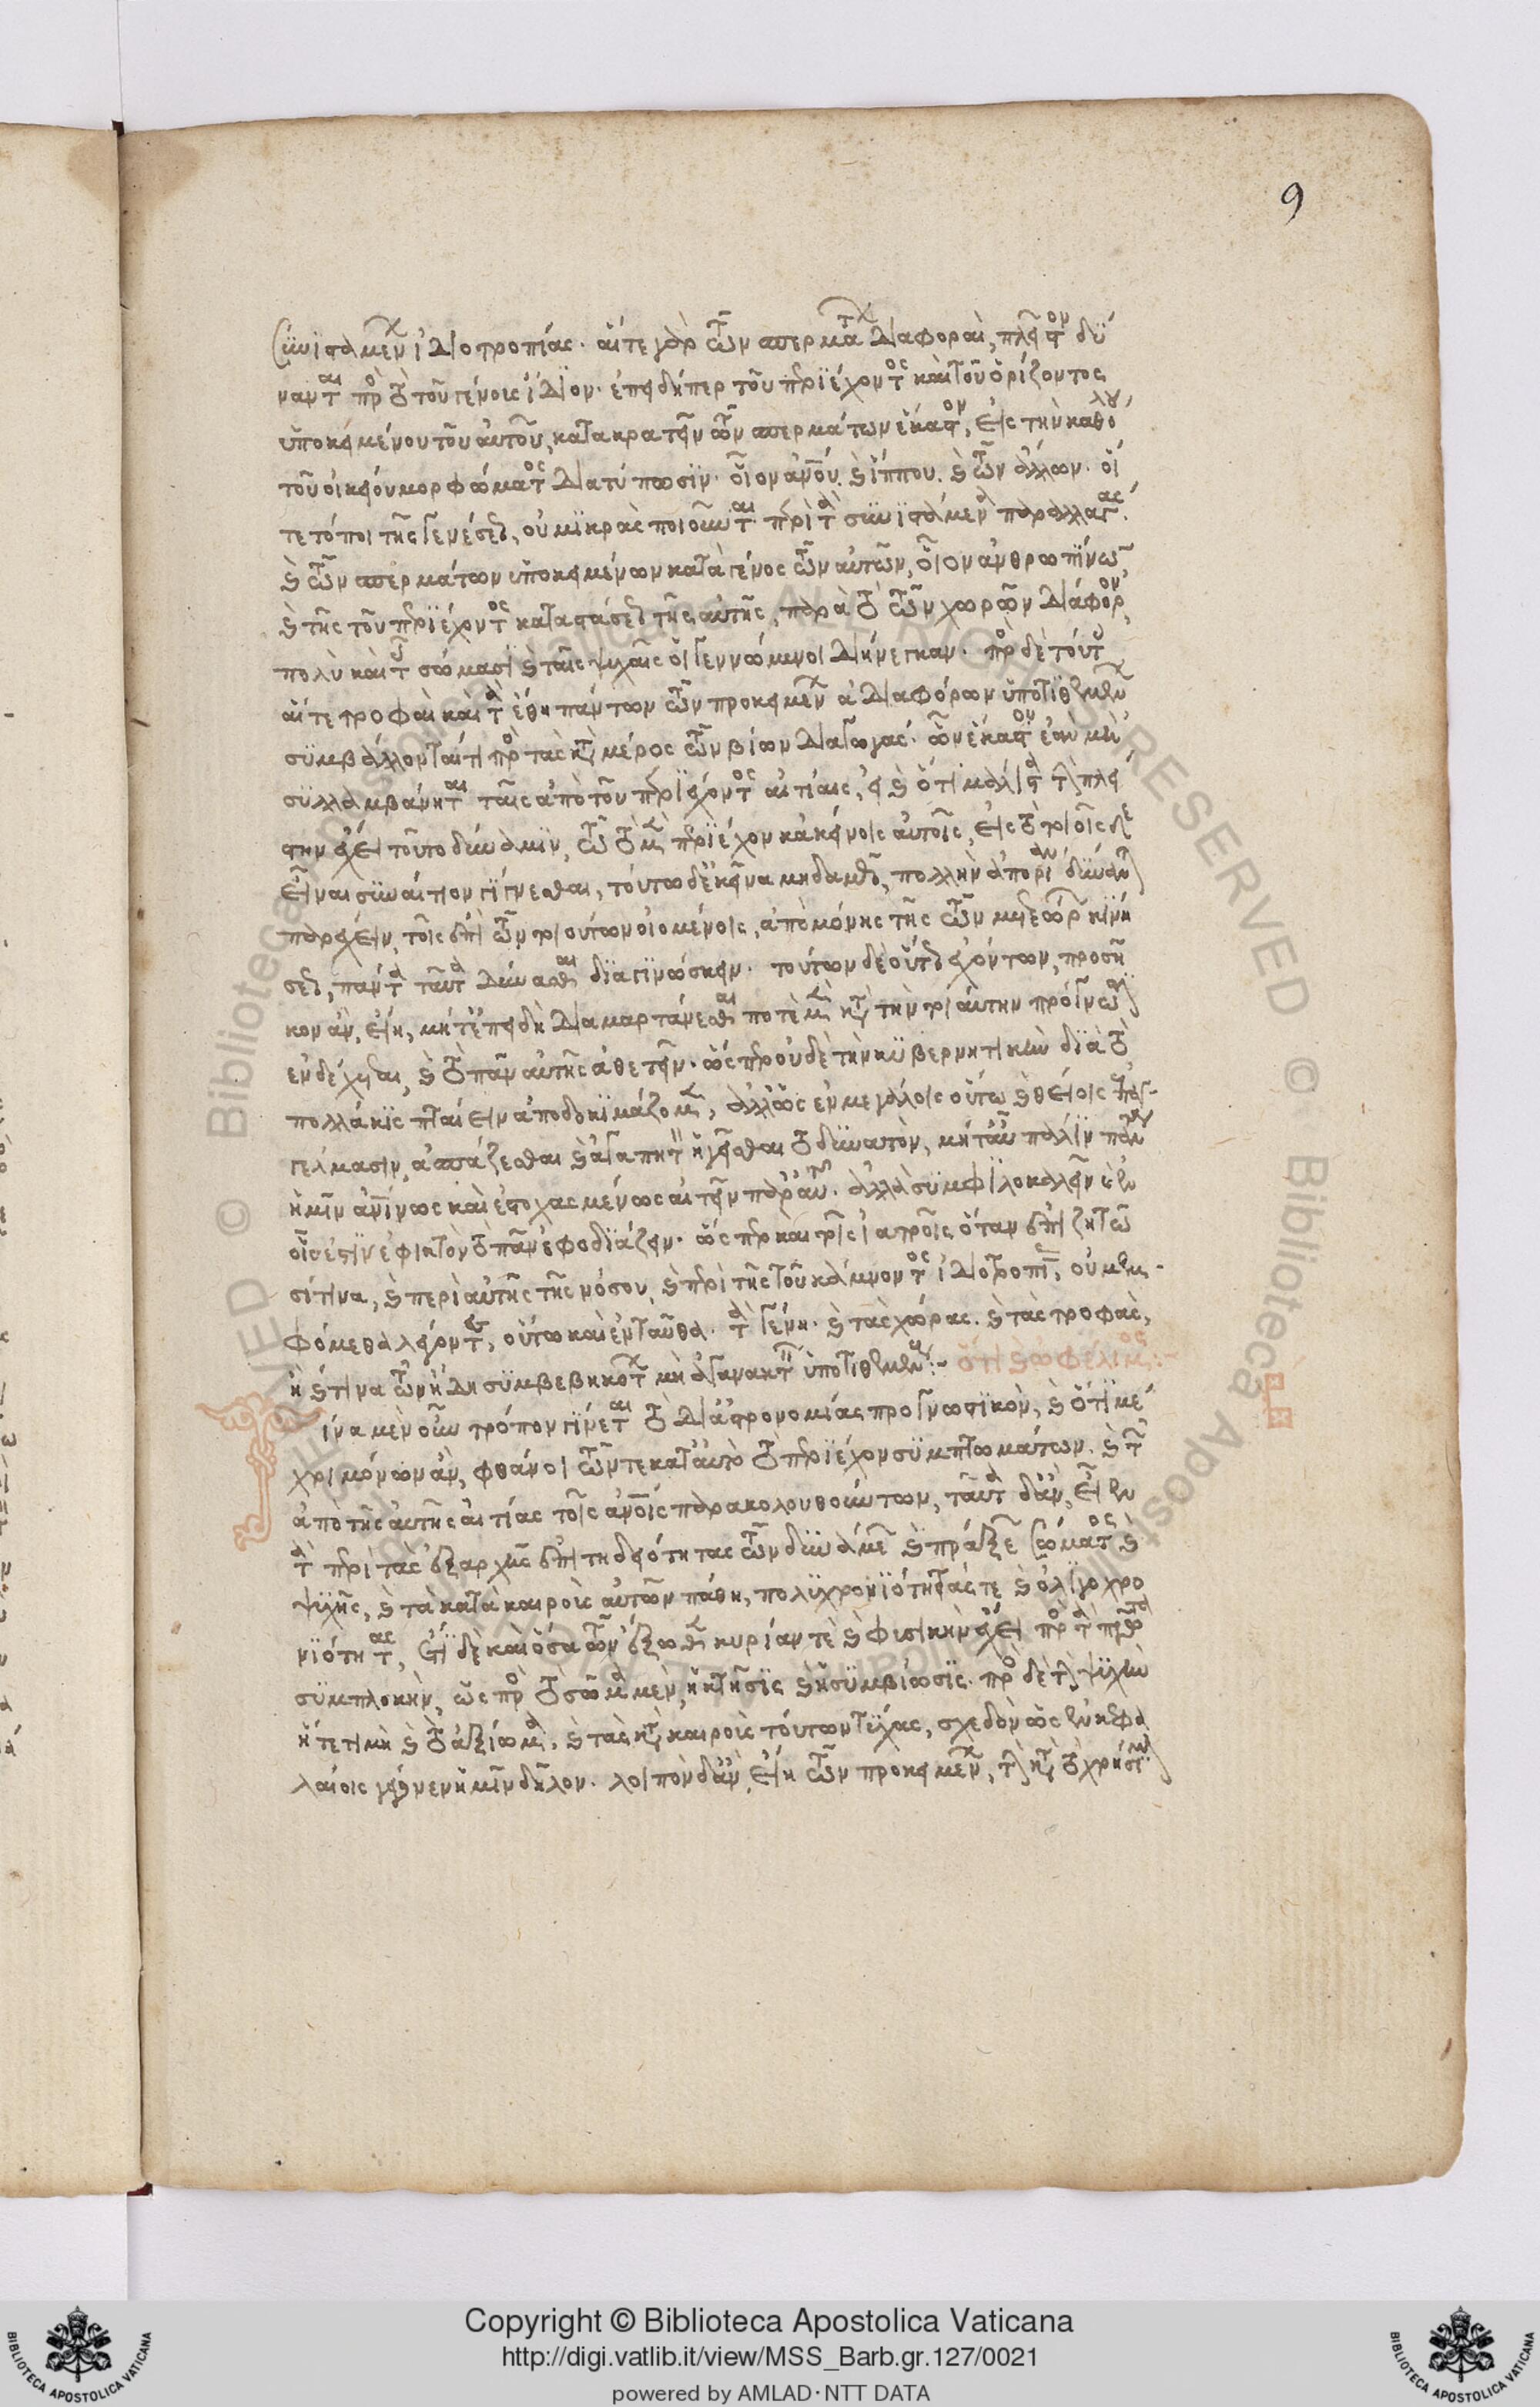 9
συνισταμένων ἰδιοτροπίας· αἵ τε γὰρ τῶν σπερμάτων διαφοραὶ, πλεῖστον δύ
νανται πρὸς τὸ τοῦ γένους ἴδιον· ἐπειδήπερ τοῦ περιέχοντος καὶ τοῦ ὁρίζοντος
ὑποκειμένου τοῦ αὐτοῦ, κατακρατεῖ τῶν σπερμάτων ἕκαστον, εἰς τὴν καθόλου
τοῦ οἰκείου μορφώματος διατύπωσιν· οἷον ἀνου. καὶ ἵππου. καὶ τῶν ἄλλων· οἵ
τε τόποι τῆς γενέσεως, οὐ μικρὰς ποιοῦνται περὶ τὰ συνιστάμενα παραλλαγάς.
καὶ τῶν σπερμάτων ὑποκειμένων κατὰ γένος τῶν αὐτῶν, οἷον ἀνθρωπίνων,
καὶ τῆς τοῦ περιέχοντος καταστάσεως τῆς αὐτῆς, παρὰ τὸ τῶν χωρῶν διάφορον,
πολὺ καὶ τοῖς σώμασι καὶ ταῖς ψυχαῖς οἱ γεννώμενοι διήνεγκαν· πρὸς δὲ τούτοις
αἵ τε τροφαὶ καὶ τὰ ἔθη πάντων τῶν προκειμένων ἀδιαφόρων ὑποτιθεμένων
συμβάλλονταί τι πρὸς τὰς κατὰ μέρος τῶν βίων διαγωγάς· ὧν ἕκαστον ἐὰν μὴ
συλλαμβάνηται ταῖς ἀπὸ τοῦ περιέχοντος αἰτίαις, εἰ καὶ ὅτι μάλιστα τὴν πλεί
στην ἔχει τοῦτο δύναμιν, τῷ τὸ μὲν περιέχον κἀκείνοις αὐτοῖς, εἰς τὸ τοιοῖσδε
εἶναι συναίτιον γίγνεσθαι, τούτῳ δ' ἐκεῖνα μηδαμῶς, πολλὴν ἀπορίαν δύναται
παρέχειν, τοῖς ἐπὶ τῶν τοιούτων οἰομένοις, ἀπὸ μόνης τῆς τῶν μετεώρων κινή
σεως, πάντα ταῦτα δύνασθαι διαγινώσκειν· τούτων δὲ οὕτως ἐχόντων, προσῆ
κον ἂν, εἴη, μήτ' ἐπειδὴ διαμαρτάνεσθαι ποτὲ μὲν κατὰ τὴν τοιαύτην πρόγνωσιν
ἐνδέχεται, καὶ τὸ πᾶν αὐτῆς ἀθετεῖν· ὥσπερ οὐδὲ τὴν κυβερνητικὴν διὰ τὸ
πολλάκις πταίειν ἀποδοκιμάζομεν, ἀλλ' ὡς ἐν μεγάλοις οὕτω καὶ θείοις ἐπαγ-
γέλμασιν, ἀσπάζεσθαι καὶ ἀγαπητὸν ἡγεῖσθαι τὸ δυνατὸν, μήτ' αὖ πάλιν πάντα
ἡμῖν ἀνίνως καὶ ἐστοχασμένως αἰτεῖν παρ' αὐτῆς· ἀλλὰ συμφιλοκαλεῖν καὶ ἐν
οἷς ἐστὶν ἐφικτὸν τὸ πᾶν ἐφοδιάζειν· ὥσπερ καὶ τοῖς ἰατροῖς ὅταν ἐπιζητῶ
σί τινα, καὶ περὶ αὐτῆς τῆς νόσου, καὶ περὶ τῆς τοῦ κάμνοντος ἰδιοτροπίας, οὐ μεμ-
φόμεθα λέγοντες, οὕτω καὶ ἐνταῦθα· τὰ γένη· καὶ τὰς χώρας. καὶ τὰς τροφὰς,
ἢ καί τινα τῶν ἤδη συμβεβηκότων μὴ ἀγανακτεῖν ὑποτιθεμένων:- ὅτι καὶ ὠφέλιμος:-
ίνα μὲν οὖν τρόπον γίνεται τὸ δι' ἀστρονομίας προγνωστικὸν, καὶ ὅτι μέ
χρι μόνων ἂν, φθάνοι τῶν τε κατ' αὐτὸ τὸ περιέχον συμπτωμάτων. καὶ τῶν
ἀπὸ τῆς αὐτῆς αἰτίας τοῖς ἀνοις παρακολουθούντων, ταῦτα δ' ἂν, εἴη
τὰ περὶ τὰς ἐξ ἀρχῆς ἐπιτηδειότητας τῶν δυνάμεων καὶ πράξεων σώματος καὶ
ψυχῆς, καὶ τὰ κατὰ καιροὺς αὐτῶν πάθη, πολυχρονιότητάς τε καὶ ὀλιγοχρο
νιότητας, ἔτι δὲ καὶ ὅσα τῶν ἔξωθεν κυρίαν τὲ καὶ φυσικὴν ἔχει πρὸς τὰ πρῶτα
συμπλοκὴν, ὡς πρὸς τὸ σῶμα μὲν, ἡ κτῆσις καὶ ἡ συμβίωσις· πρὸς δὲ τὴν ψυχὴν
ἥ τε τιμὴ καὶ τὸ ἀξίωμα. καὶ τὰς κατὰ καιροὺς τούτων τύχας, σχεδὸν ὡς ἐν κεφα
λαίοις γέγονεν ἡμῖν δῆλον· λοιπὸν δ' ἂν, εἴη τῶν προκειμένων, τὴν κατὰ τὸ χρήσιμον
Copyright © Biblioteca Apostolica Vaticana
http://digi.vatlib.it/view/MSS_Barb.gr.127/0021
powered by AMLAD·NTT DATA